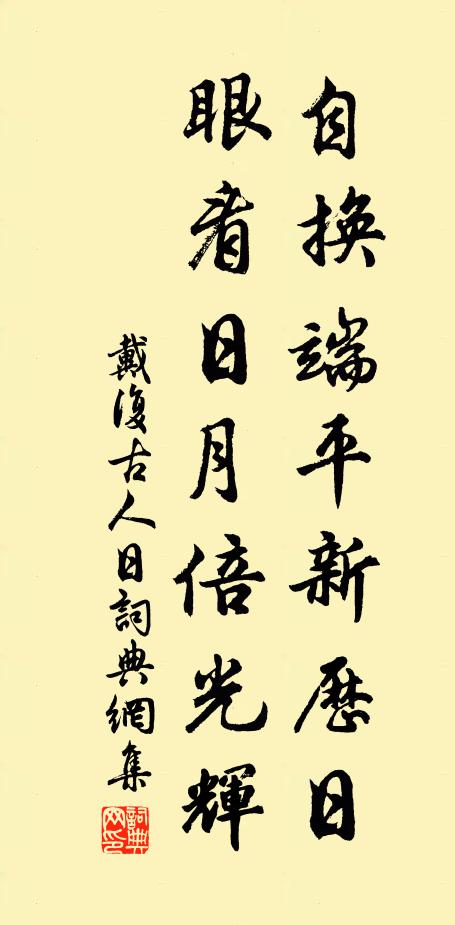 自換端平新歷日
眼看日月倍光輝
戴復古人日詞典網集
詞典网印